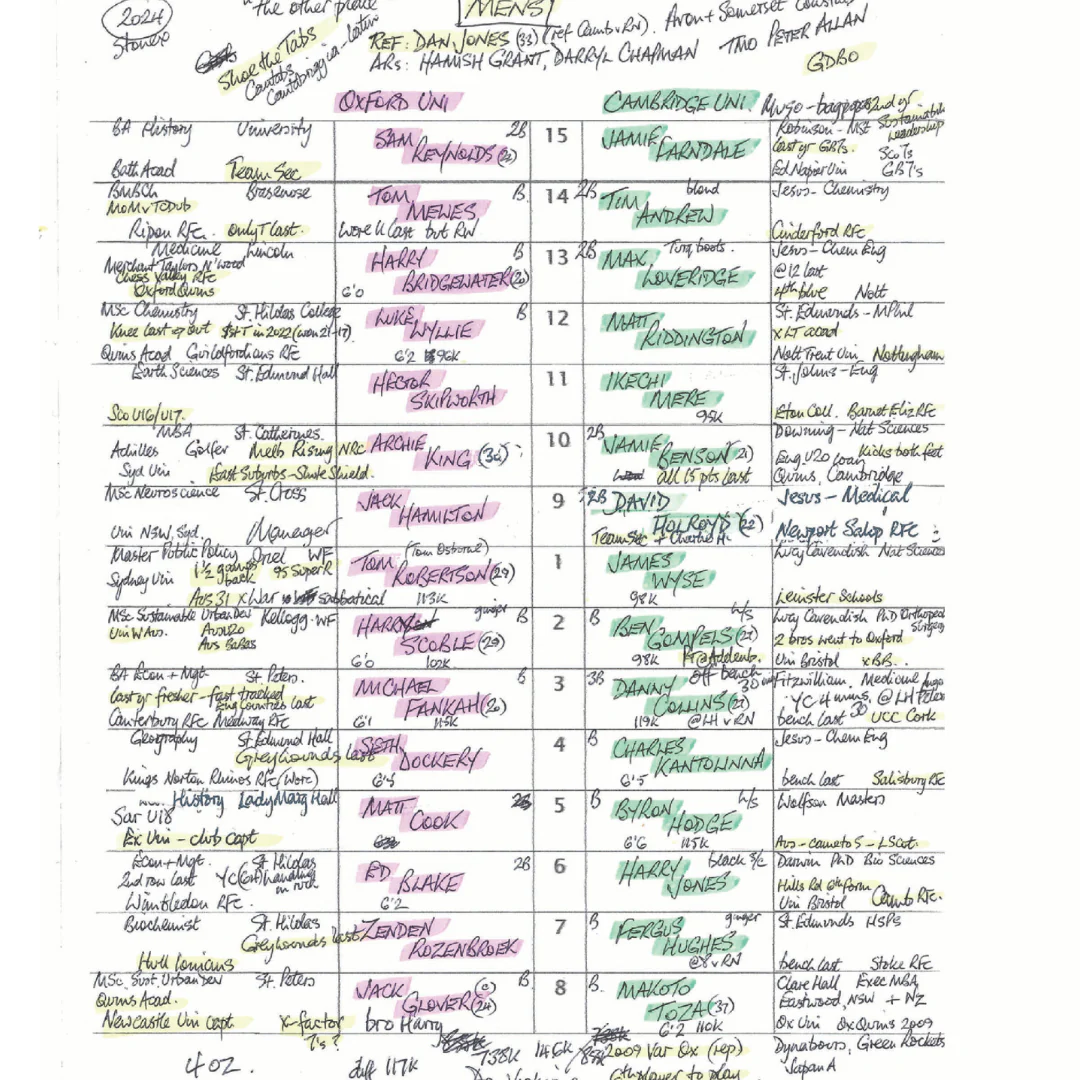 2024
the other
MENS
Stonex
Shoe the Tabs
REF: DAN JONES (33) (ref Camb v RN). Avon + Somerset
ARs: HAMISH GRANT, DARRYL CHAPMAN TMO PETER ALLAN
GDBO
OXFORD UNI
CAMBRIDGE UNI. 2nd yr
BA History University
Bath Acad Team Sec
SAM 2B
REYNOLDS (22)
15
JAMIE
FARNDALE
Robinson - MSt Sustainable
Leadership
last yr GB7s. Sco7s
Ed Napier Uni GB7's
BMBCh Brasenose
MoM v TCDub
Ripon RFC. only T last.
TOM B.
MEWES
Wore 11 last but RW
14
2B blond
TIM
ANDREW
Jesus - Chemistry
Cinderford RFC
Medicine Lincoln
Merchant Taylors N'wood
Chess Valley RFC
Oxford Qurns
HARRY B
BRIDGEWATER (20)
6'0
13
2B MAX Turq boots.
LOVERIDGE
Jesus - Chem Eng
@12 last
4th blue Nott
MSc Chemistry St. Hildas College
Knee last op out S+T in 2022 (won 21-17)
Qurns Acad Guildfordians RFC
LUKE B
WYLLIE
6'2 96k
12
MATT
RIDDINGTON
St. Edmunds - MPhil
x LT acad
Nott Trent Uni Nottingham
Earth Sciences St. Edmund Hall
Sco U16/U17.
HECTOR
SKIPWORTH
11
IKECHI
MERE
95k
St. Johns - Eng
Eton Coll. Barnet Eliz RFC
MBA St. Catherines.
Achilles Golfer Melb Rising NRC
Syd Uni East Suburbs - Shute Shield.
ARCHIE
KING
10
2B JAMIE
BENSON (21)
all 15 pts last
Downing - Nat Sciences
Eng U20 loan Kicks both feet
Qurns, Cambridge
MSc Neuroscience St. Cross
Uni NSW, Syd. Manager
JACK
HAMILTON
9
2B DAVID
HOLROYD (22)
Team Sec + Charlie H.
Jesus - Medical
Newport Salop RFC
Master Public Policy Oriel WF
Sydney Uni 1½ games back 95 Super R
Aus 31 x War sabbatical
TOM (Tom Osborne)
ROBERTSON (29)
113k
1
JAMES
WYSE
98k
Lucy Cavendish Nat Sciences
Leinster Schools
MSc Sustainable Urban Dev Kellogg. WF
Uni W Aus. Aus U20
Aus BaBas
HARR ginger B
SCOBLE
6'0 102k
2
B BEN h/s
GOMPELS (27)
98k @Addenb.
Lucy Cavendish PhD Orthoped
Surgery
2 bros went to Oxford
Uni Bristol x BB.
BA Econ + Mgt St. Peters.
last yr fresher - fast tracked
Eng Counties last
Canterbury RFC Medway RFC
MICHAEL B
FANKAH (20)
6'1 115k
3
3B DANNY off bench
COLLINS (27)
119k @LH v RN
Fitzwilliam, Medicine
YC 4 mins. @LH
bench last UCC Cork
Geography St. Edmund Hall
Greyhounds last
Kings Norton Rhinos RFC (Worc)
SETH
DOCKERY
6'5
4
B CHARLES
KANTOLINNA
6'5
Jesus - Chem Eng
bench last Salisbury RFC
History Lady Marg Hall
Sar U18
Ex Uni - club capt
MATT 2B
COOK
5
B BYRON h/s
HODGE
6'6 115k
Wolfson Masters
Aus - came to S - L Scot.
Econ + Mgt. St. Hildas
2nd row last YC handling
in ruck
Wimbledon RFC.
ED 2B
BLAKE
6'2
6
HARRY black s/c
JONES
Darwin PhD Bio Sciences
Hills Rd 6th form
Uni Bristol Camb RFC.
Biochemist St. Hildas
Greyhounds last
Hull Ionians
ZENDEN
ROZENBROEK
7
B FERGUS ginger
HUGHES
@8 v RN
St. Edmunds HSPS
bench last Stoke RFC
MSc. Sust. Urban Dev St. Peters
Qurns Acad.
Newcastle Uni capt x-factor
7's?
JACK (c) B
GLOVER (24)
bro Harry
8
B. MAKOTO
TOZA (37)
6'2 110k
Clare Hall Exec MBA
Eastwood, NSW + NZ
Ox Uni Ox Qurns 2009
Dynaboars, Green Rockets
Japan A
4oz.
diff 117k
738k
2009 Var Ox (rep)
6th player to play